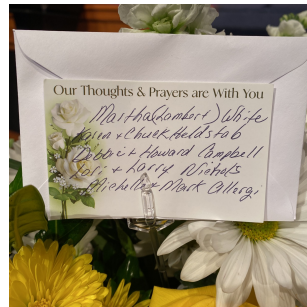 Our Thoughts & Prayers are With You
Martha (Lambert) White
Karen + Chuck Heldstab
Debbie + Howard Campbell
Lori + Larry Nichols
Michelle + Mark Allergi